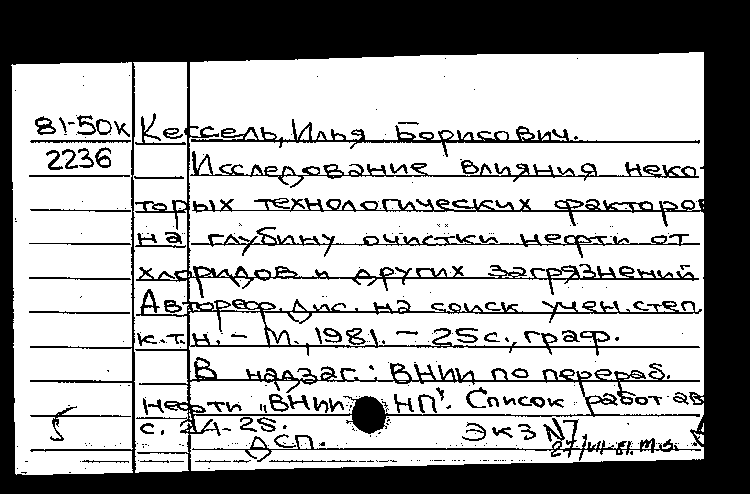 81-50к Кессель, Илья Борисович.
2236 Исследование влияния неко-
торых технологических факторов
на глубину очистки нефти от
хлоридов и других загрязнений
Автореф. дис. на соиск учен. степ.
к.т.н. - М., 1981. - 25 с., граф.
В надзаг.: ВНИИ по перераб.
нефти „ВНИИ НП". Список работ ав
с. 24-25.
ДСП. Экз N7
27/VII-81.